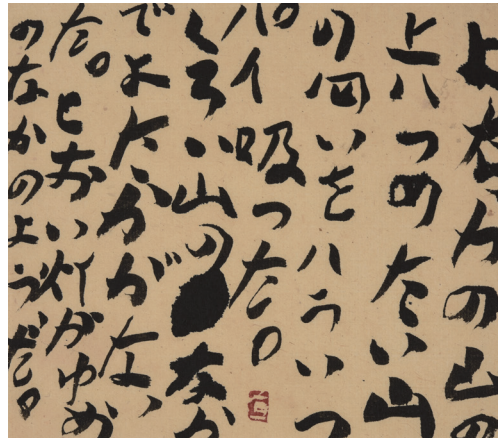 の山の
上ハつめたい山
の匂いをハラいっ
パイ吸った。
くろい山のなか
でよたかがない
た。とおい灯がゆめ
のなかのようだ。